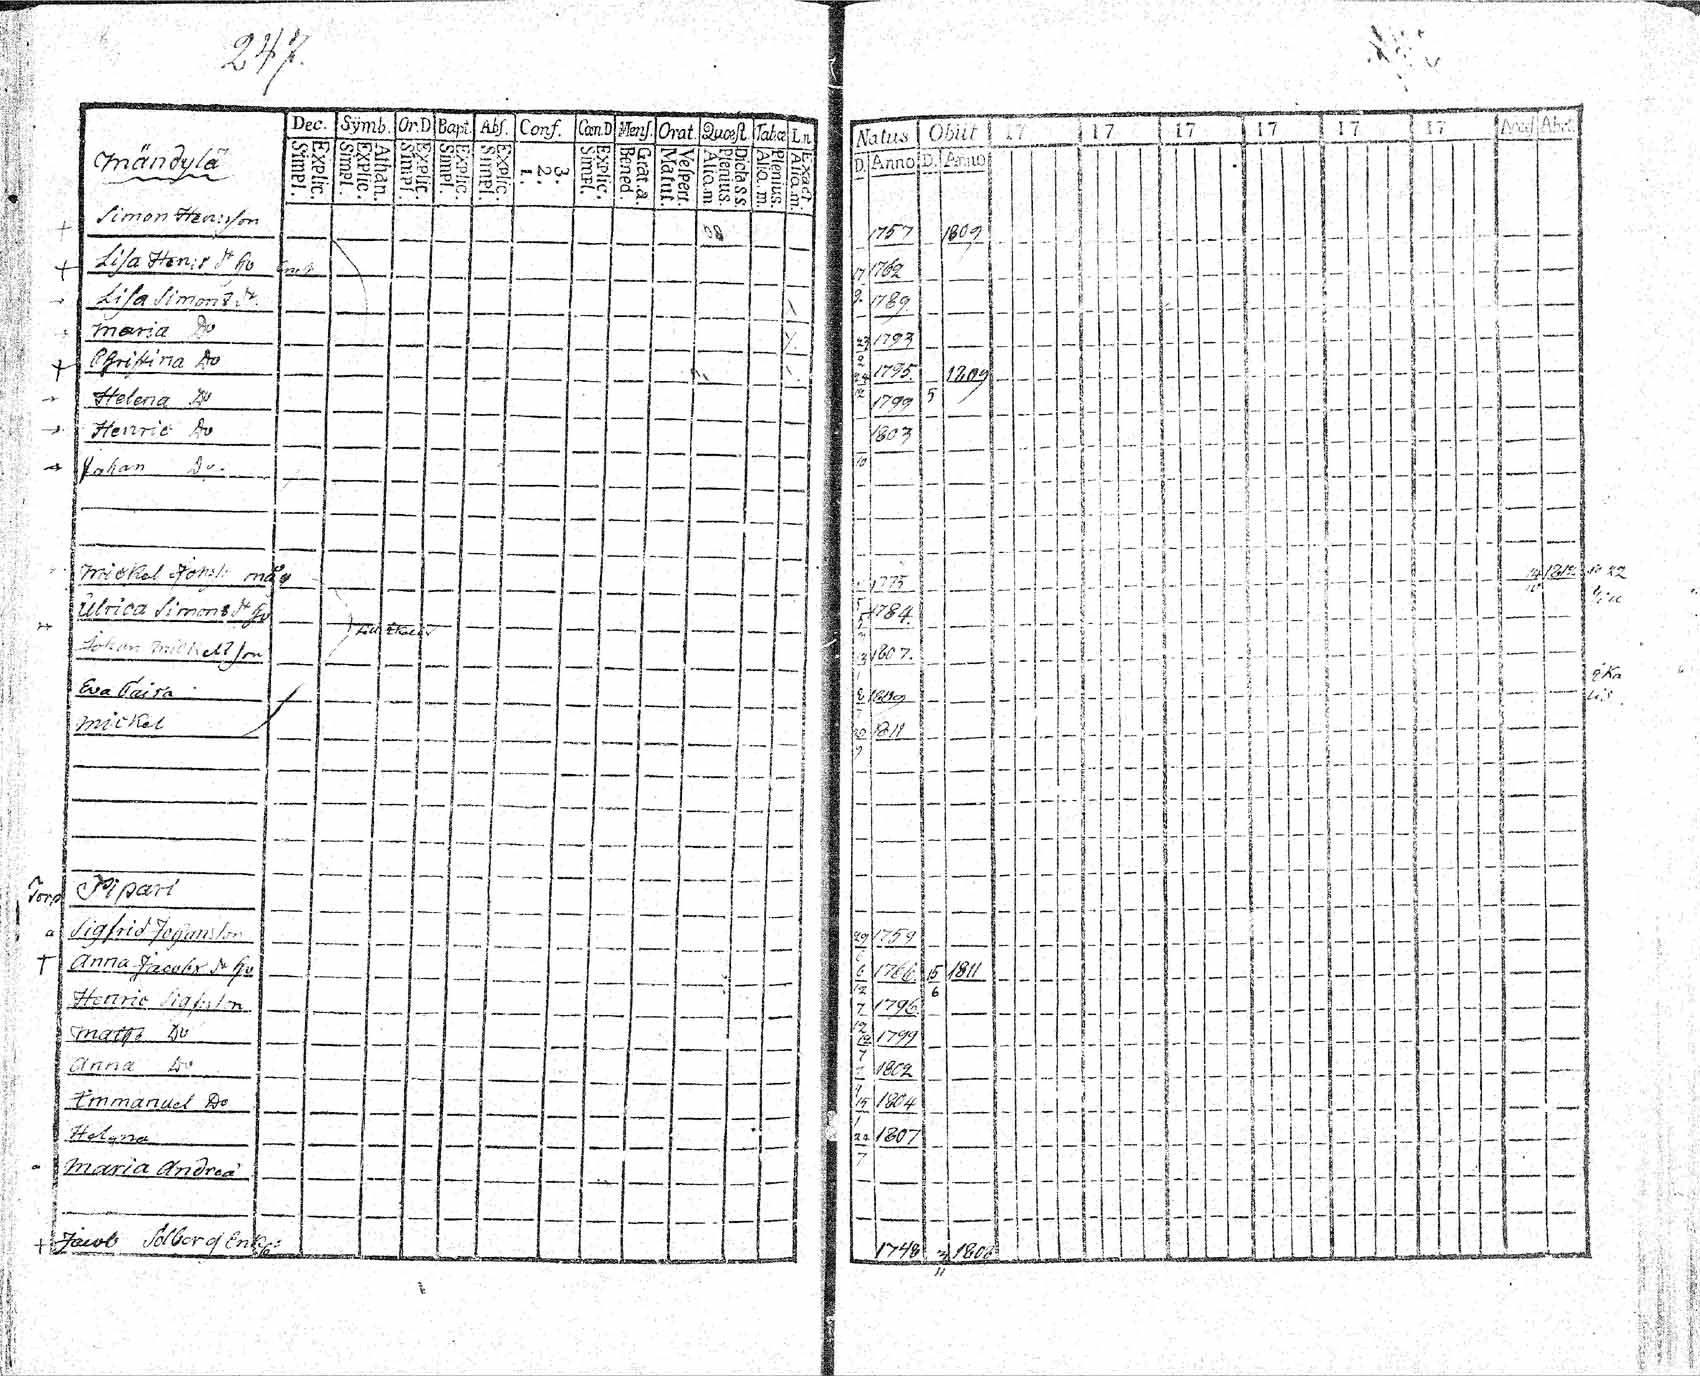 247.
Dec. Symb. Or.D Bapt. Abs. Conf. Cœn.D Mens. Orat. Quœst Tabœ Ln
Mändylä
Explic. Simpl. Athan. Explic. Simpl. Explic. Simpl. Explic. Simpl. Explic. Simpl. 3. 2. 1. Explic. Simpl. Grat. a. Bened. Vespert. Matut. Dicta s s Plenius. Alia. m Plenius. Alia. m. Exact. Alia. m.
Natus Obiit 17 17 17 17 17 17
D. Anno D. Anno
Simon Henrsson 08 1757 1809
Lisa Henrs dr hu 17 1762
Lisa Simons dr. 9. 1789
Maria Do 23 1793
Christina Do 2 24 1795 1809
Helena Do 12 1799 5
Henric Do 1803
Johan Do. 10
Mickel Johss måg 1775 1812
Ulrica Simons dr hu 1784
Johan Mickellson 1807.
Eva Caisa 8 1809
Mickel 20 1811
9
Torp Pipari
Sigfrid Johansson 29 1759
Anna Jacobs dr hu 6 1766 15 1811
12 6
Henric Sigfsson 7 1796
12
Matts Do 1799
7
Anna Do 1802
9
Emmanuel Do 15 1804
1
Helena 24 1807
7
Maria Andrea
Jacob Solberg Enk. 1748 3 1808
11